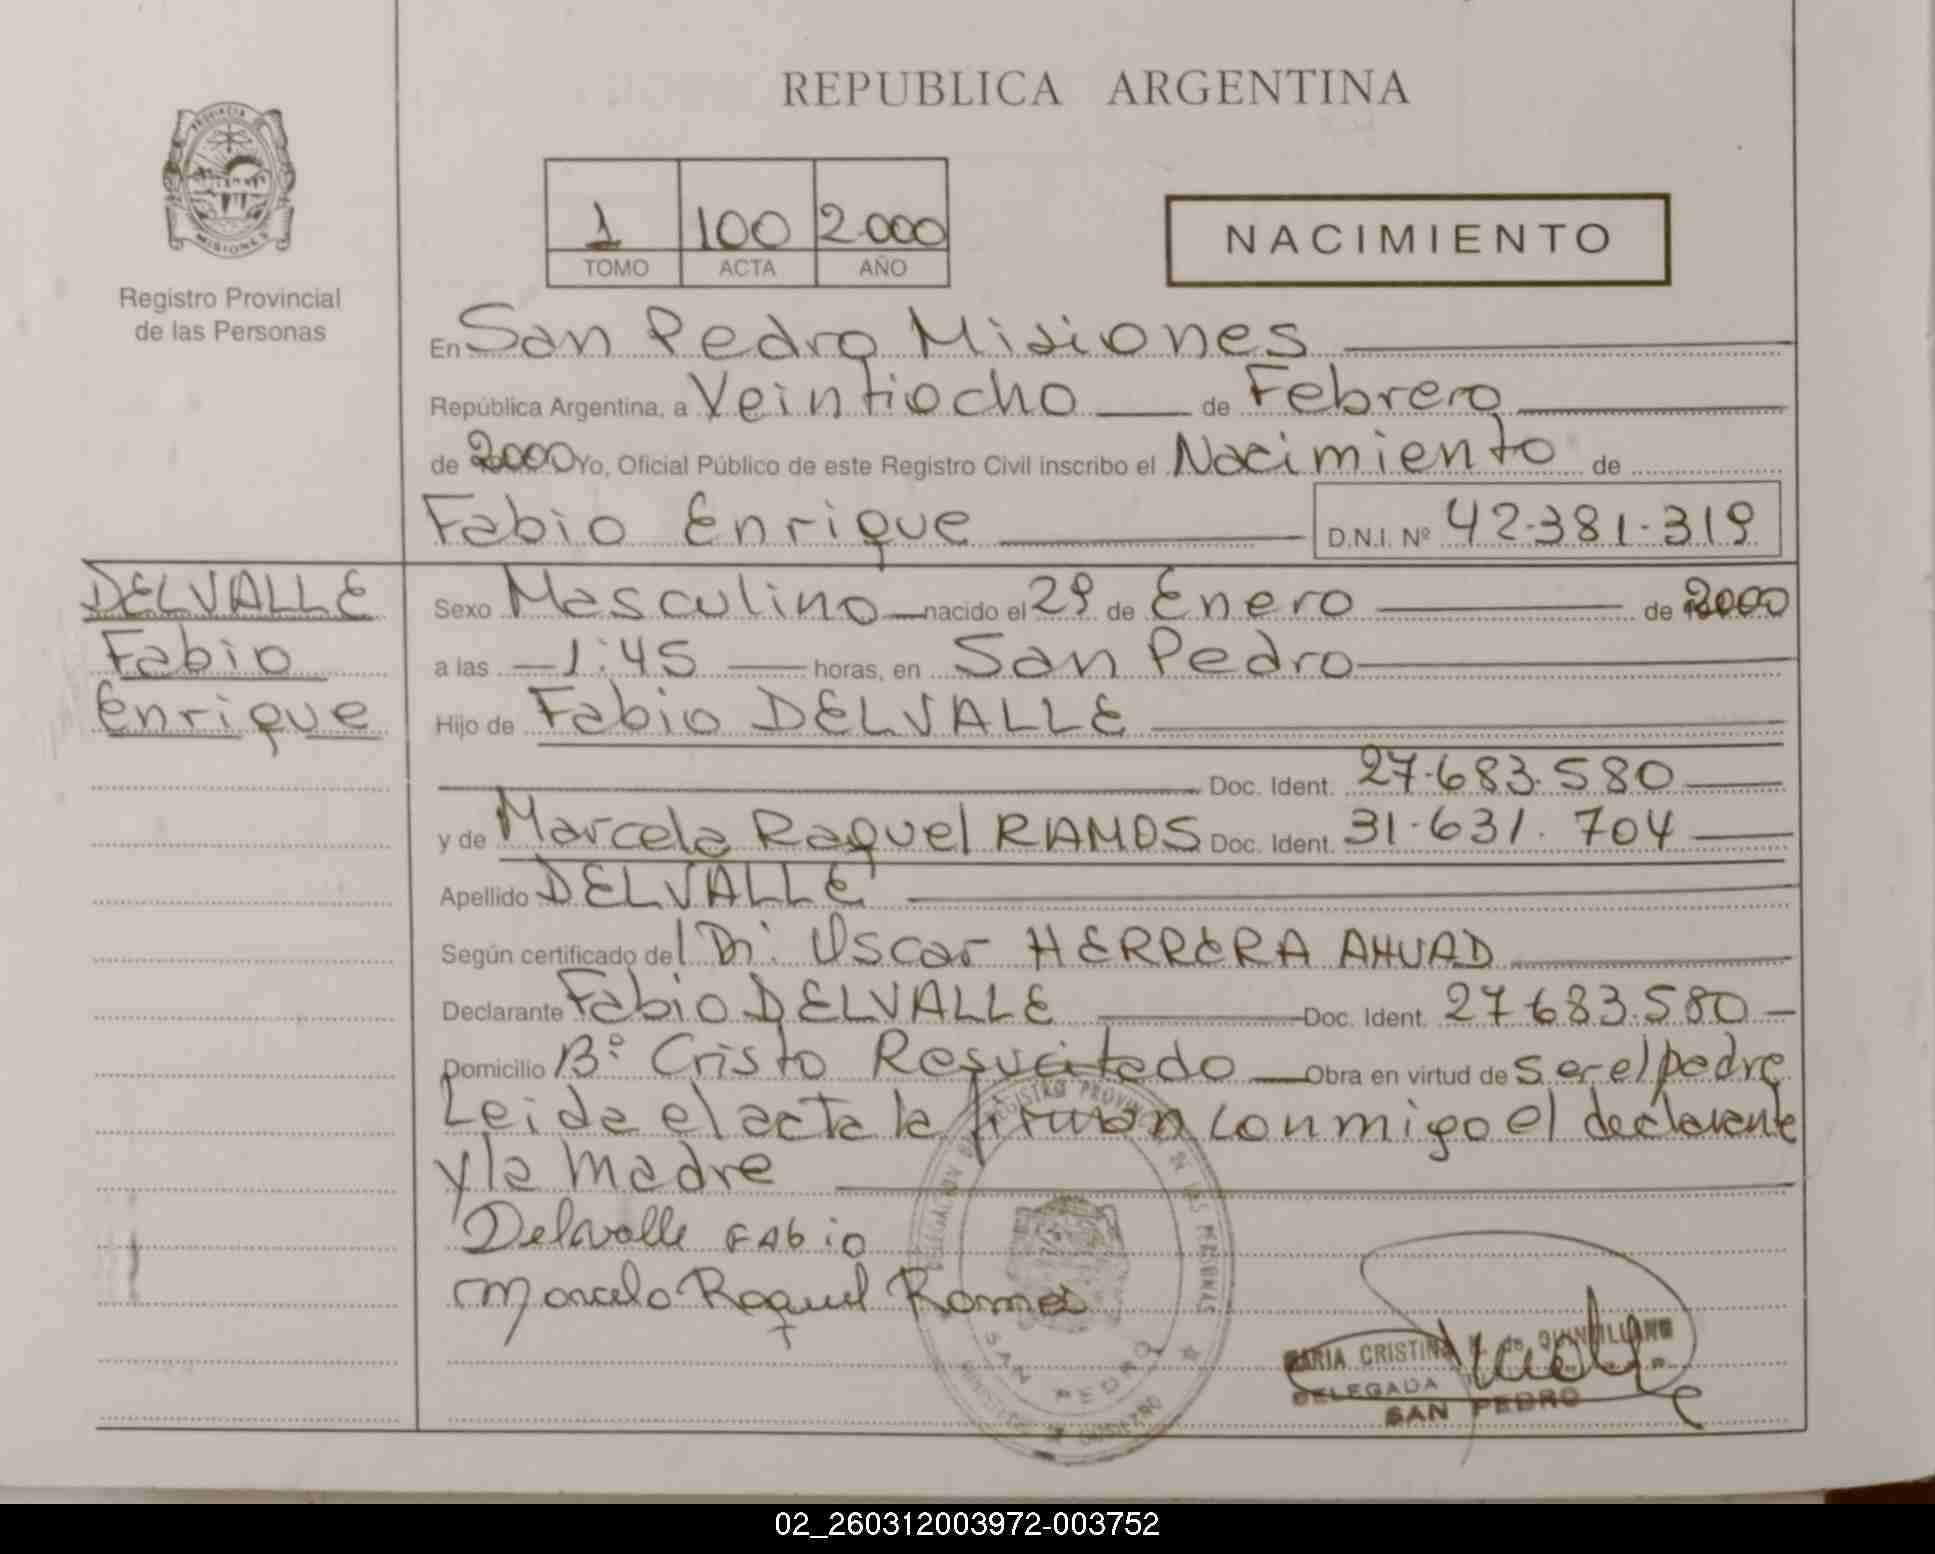 REPUBLICA ARGENTINA
PROVINCIA DE
MISIONES
Registro Provincial
de las Personas
1 100 2.000
TOMO ACTA AÑO
NACIMIENTO
En San Pedro Misiones
República Argentina, a Veintiocho de Febrero
de 2000 Yo, Oficial Público de este Registro Civil inscribo el Nacimiento de
Fabio Enrique D.N.I. Nº 42.381.319
DELVALLE
Fabio
Enrique
Sexo Masculino nacido el 29 de Enero de 2000
a las 1:45 horas, en San Pedro
Hijo de Fabio DELVALLE
Doc. Ident. 27.683.580
y de Marcela Raquel RAMOS Doc. Ident. 31.631.704
Apellido DELVALLE
Según certificado del Dr. Oscar HERRERA AHUAD
Declarante Fabio DELVALLE Doc. Ident. 27.683.580
Domicilio Bº Cristo Resucitado Obra en virtud de ser el padre
Leida el acta la firman conmigo el declarante
y la madre
Delvalle FAbio
Marcela Raquel Ramos
REGISTRO PROVINCIAL DE LAS PERSONAS
SAN PEDRO
MARIA CRISTINA de QUINTILLANO
DELEGADA
SAN PEDRO
02_260312003972-003752